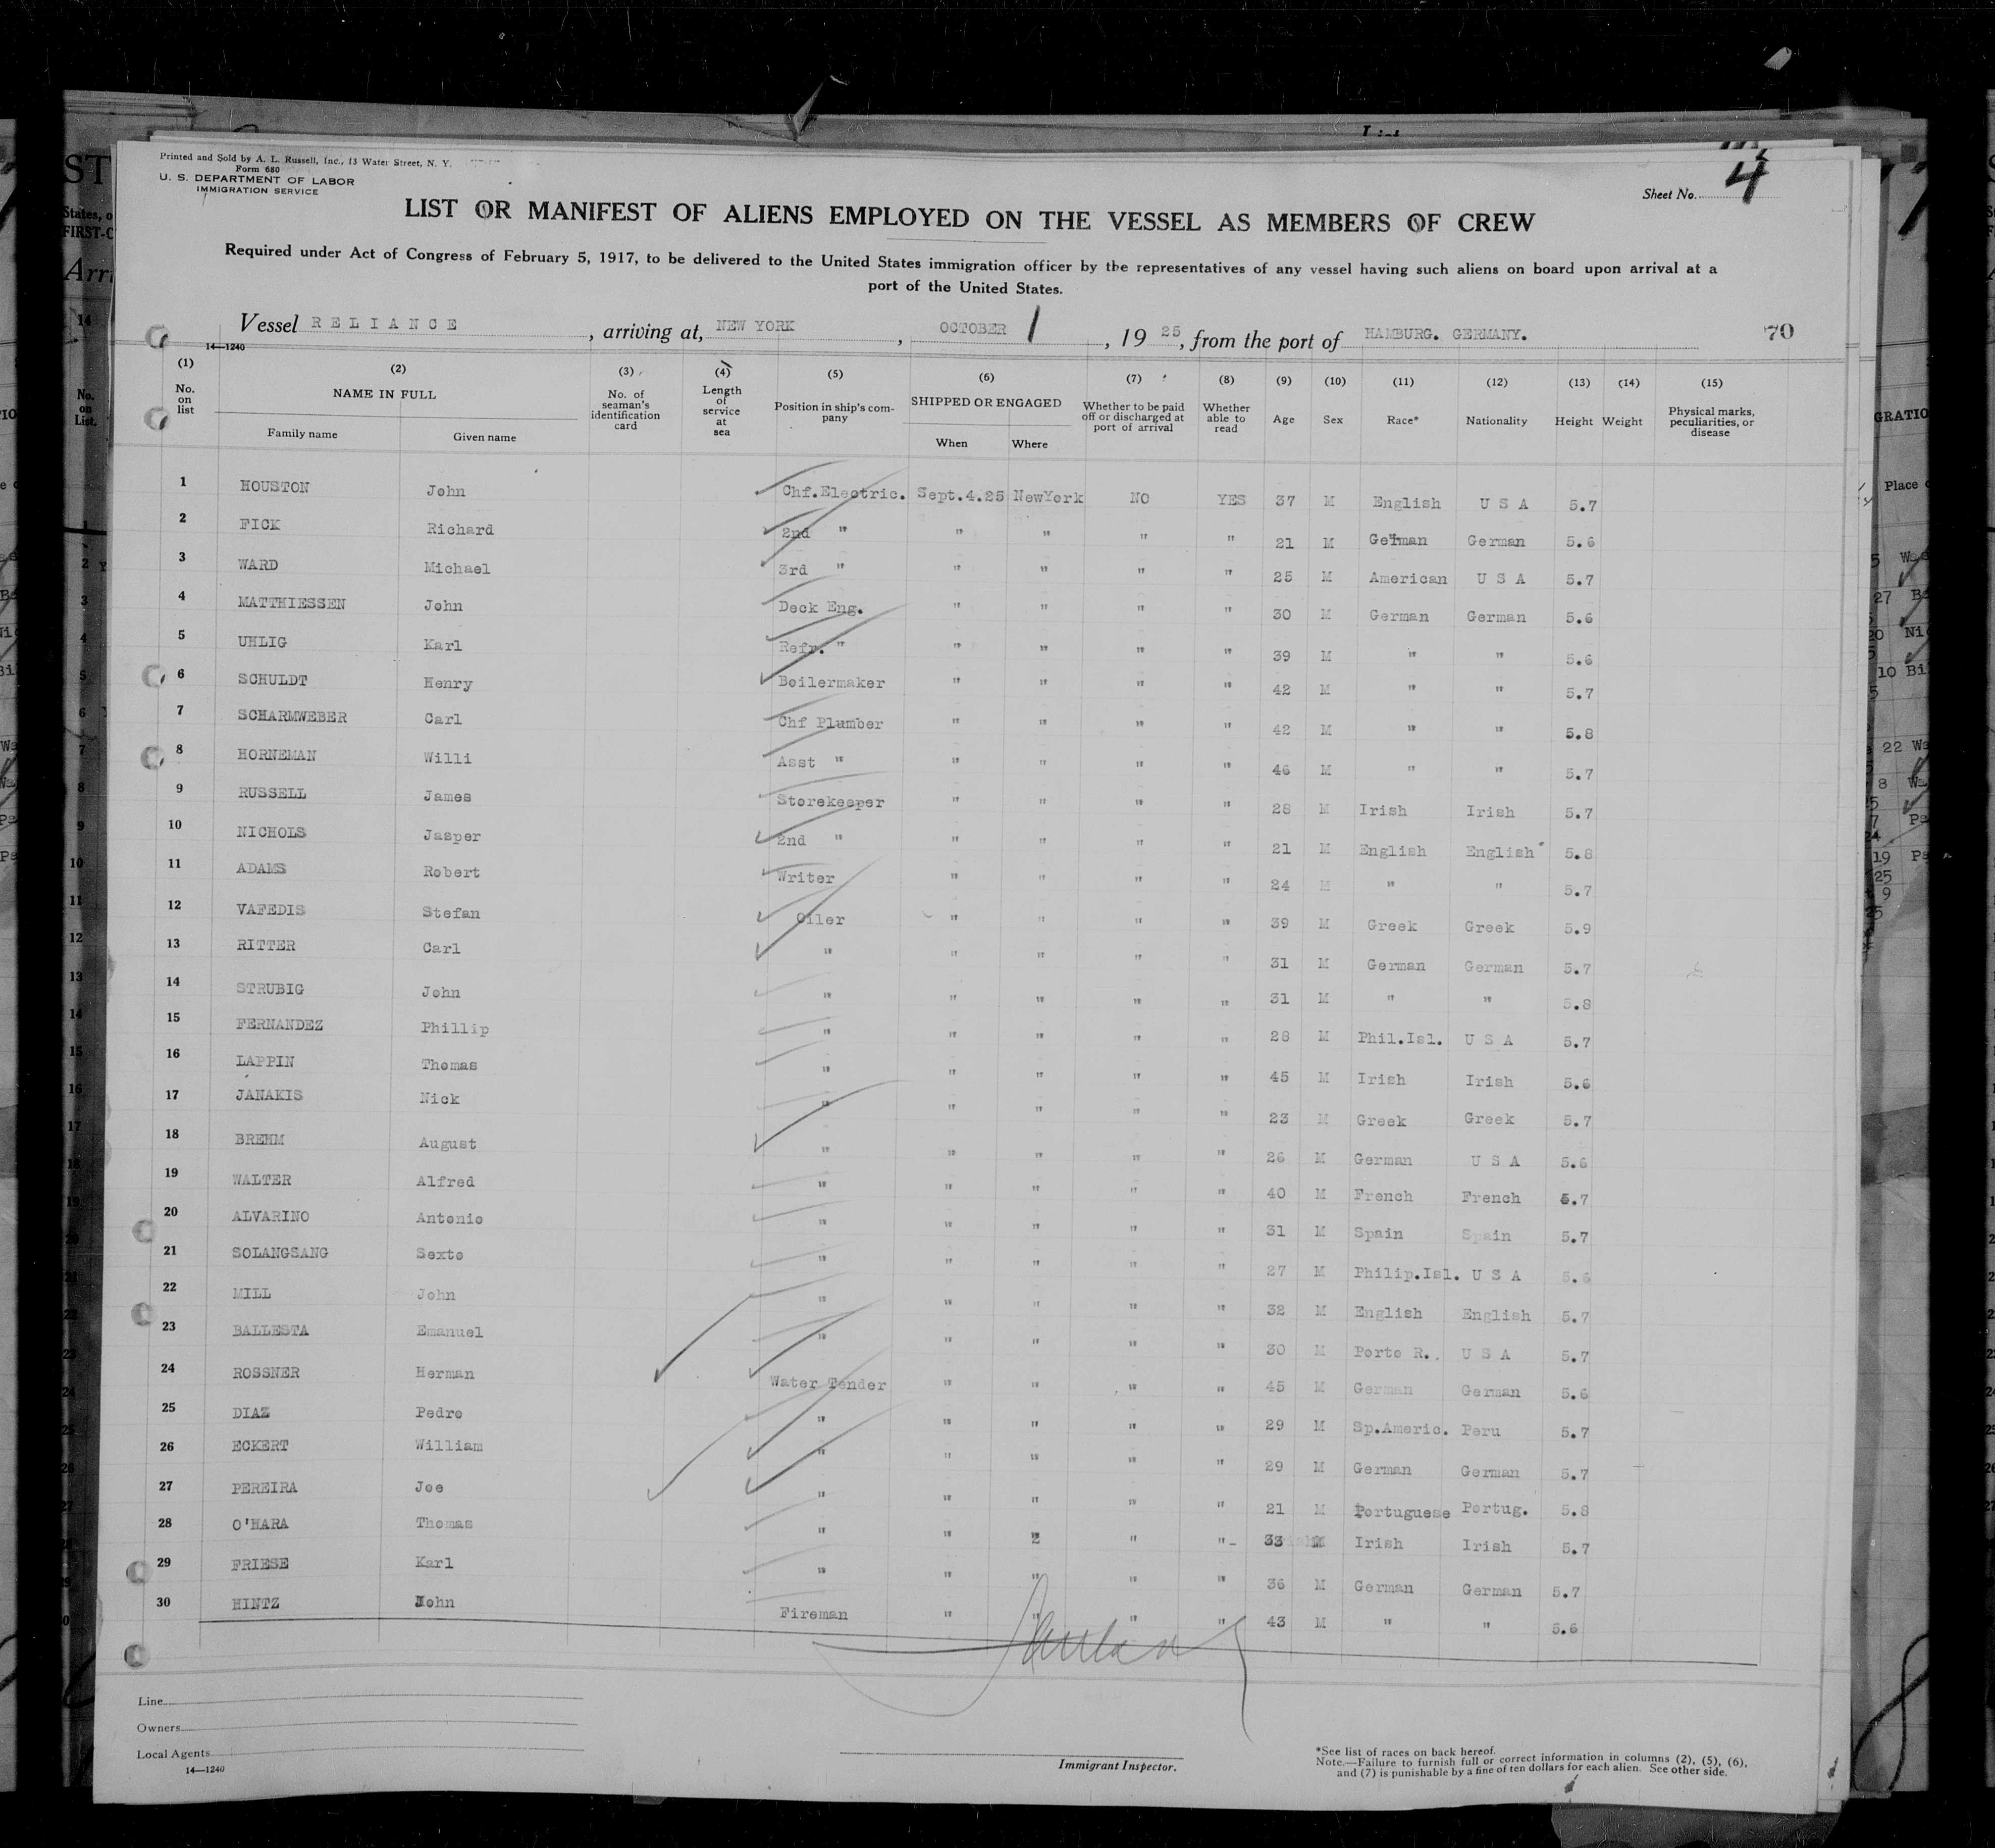 Printed and Sold by A. L. Russell, Inc., 13 Water Street, N. Y.
Form 680
U. S. DEPARTMENT OF LABOR
IMMIGRATION SERVICE
Sheet No. 4
LIST OR MANIFEST OF ALIENS EMPLOYED ON THE VESSEL AS MEMBERS OF CREW
Required under Act of Congress of February 5, 1917, to be delivered to the United States immigration officer by the representatives of any vessel having such aliens on board upon arrival at a
port of the United States.
Vessel RELIANCE, arriving at, NEW YORK, OCTOBER 1, 1925, from the port of HAMBURG. GERMANY. 70
14—1240
(1) (2) (3) (4) (5) (6) (7) (8) (9) (10) (11) (12) (13) (14) (15)
No. on list NAME IN FULL Family name Given name No. of seaman's identification card Length of service at sea Position in ship's company SHIPPED OR ENGAGED When Where Whether to be paid off or discharged at port of arrival Whether able to read Age Sex Race* Nationality Height Weight Physical marks, peculiarities, or disease
1 HOUSTON John Chf.Electric. Sept.4.25 NewYork NO YES 37 M English U S A 5.7
2 FICK Richard 2nd " " " " " 21 M German German 5.6
3 WARD Michael 3rd " " " " " 25 M American U S A 5.7
4 MATTHIESSEN John Deck Eng. " " " " 30 M German German 5.6
5 UHLIG Karl Refr. " " " " " 39 M " " 5.6
6 SCHULDT Henry Boilermaker " " " " 42 M " " 5.7
7 SCHARMWEBER Carl Chf Plumber " " " " 42 M " " 5.8
8 HORNEMAN Willi Asst " " " " " 46 M " " 5.7
9 RUSSELL James Storekeeper " " " " 28 M Irish Irish 5.7
10 NICHOLS Jasper 2nd " " " " " 21 M English English 5.8
11 ADAMS Robert Writer " " " " 24 M " " 5.7
12 VAFEDIS Stefan Oiler " " " " 39 M Greek Greek 5.9
13 RITTER Carl " " " " " 31 M German German 5.7
14 STRUBIG John " " " " " 31 M " " 5.8
15 FERNANDEZ Phillip " " " " " 28 M Phil.Isl. U S A 5.7
16 LAPPIN Thomas " " " " " 45 M Irish Irish 5.6
17 JANAKIS Nick " " " " " 23 M Greek Greek 5.7
18 BREHM August " " " " " 26 M German U S A 5.6
19 WALTER Alfred " " " " " 40 M French French 5.7
20 ALVARINO Antonio " " " " " 31 M Spain Spain 5.7
21 SOLANGSANG Sexto " " " " " 27 M Philip.Isl. U S A 5.6
22 MILL John " " " " " 32 M English English 5.7
23 BALLESTA Emanuel " " " " " 30 M Porto R.. U S A 5.7
24 ROSSNER Herman Water Tender " " " " 45 M German German 5.6
25 DIAZ Pedro " " " " " 29 M Sp.Americ. Peru 5.7
26 ECKERT William " " " " " 29 M German German 5.7
27 PEREIRA Joe " " " " " 21 M Portuguese Portug. 5.8
28 O'HARA Thomas " " " " "- 33 M Irish Irish 5.7
29 FRIESE Karl " " " " " 36 M German German 5.7
30 HINTZ John Fireman " " " " 43 M " " 5.6
Line
Owners
Local Agents
14—1240
Immigrant Inspector.
*See list of races on back hereof.
Note.—Failure to furnish full or correct information in columns (2), (5), (6),
and (7) is punishable by a fine of ten dollars for each alien. See other side.